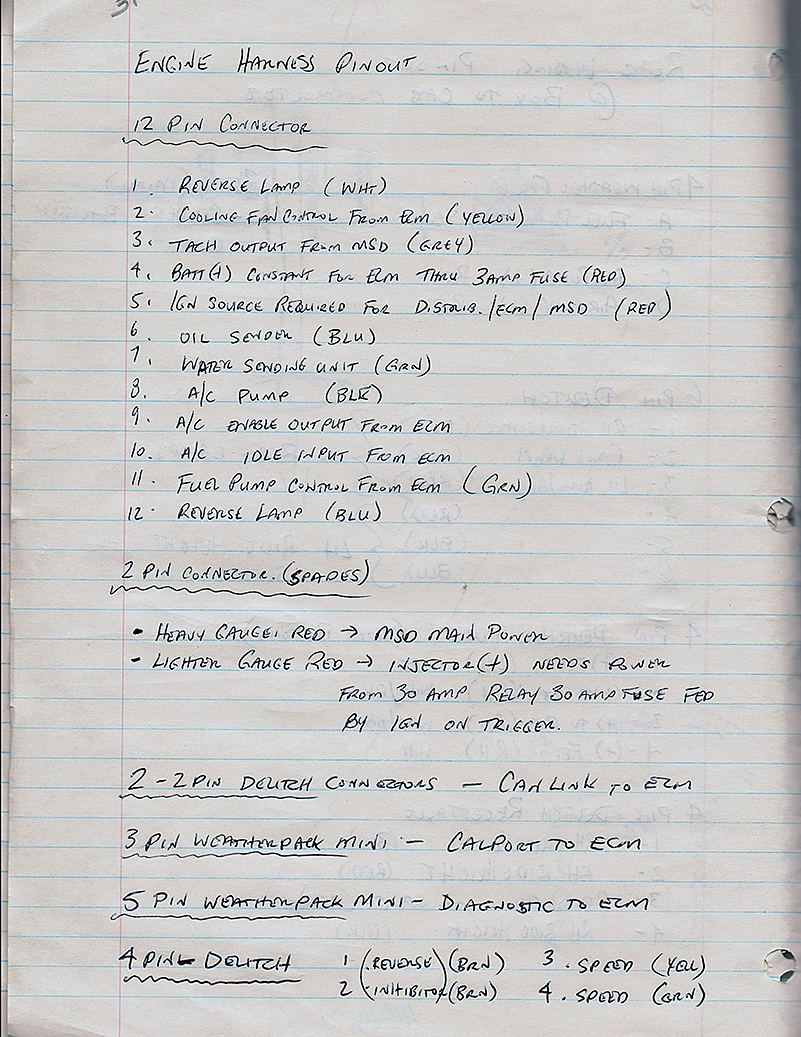 3.
ENGINE HARNESS PINOUT
12 PIN CONNECTOR
1. REVERSE LAMP (WHT)
2. COOLING FAN CONTROL FROM ECM (YELLOW)
3. TACH OUTPUT FROM MSD (GREY)
4. BATT(+) CONSTANT FOR ECM THRU 3AMP FUSE (RED)
5. IGN SOURCE REQUIRED FOR DISTRIB./ECM/MSD (RED)
6. OIL SENDER (BLU)
7. WATER SENDING UNIT (GRN)
8. A/C PUMP (BLK)
9. A/C ENABLE OUTPUT FROM ECM
10. A/C IDLE INPUT FROM ECM
11. FUEL PUMP CONTROL FROM ECM (GRN)
12. REVERSE LAMP (BLU)
2 PIN CONNECTOR. (SPADES)
• HEAVY GAUGE: RED → MSD MAIN POWER
- LIGHTER GAUGE RED → INJECTOR(+) NEEDS POWER
FROM 30 AMP RELAY 30 AMP FUSE FED
BY IGN ON TRIGGER.
2 - 2 PIN DEUTCH CONNECTORS — CAN LINK TO ECM
3 PIN WEATHERPACK MINI — CALPORT TO ECM
5 PIN WEATHERPACK MINI - DIAGNOSTIC TO ECM
4 PIN DEUTCH 1 (REVERSE) (BRN) 3. SPEED (YEL)
2 (INHIBITOR) (BRN) 4. SPEED (GRN)